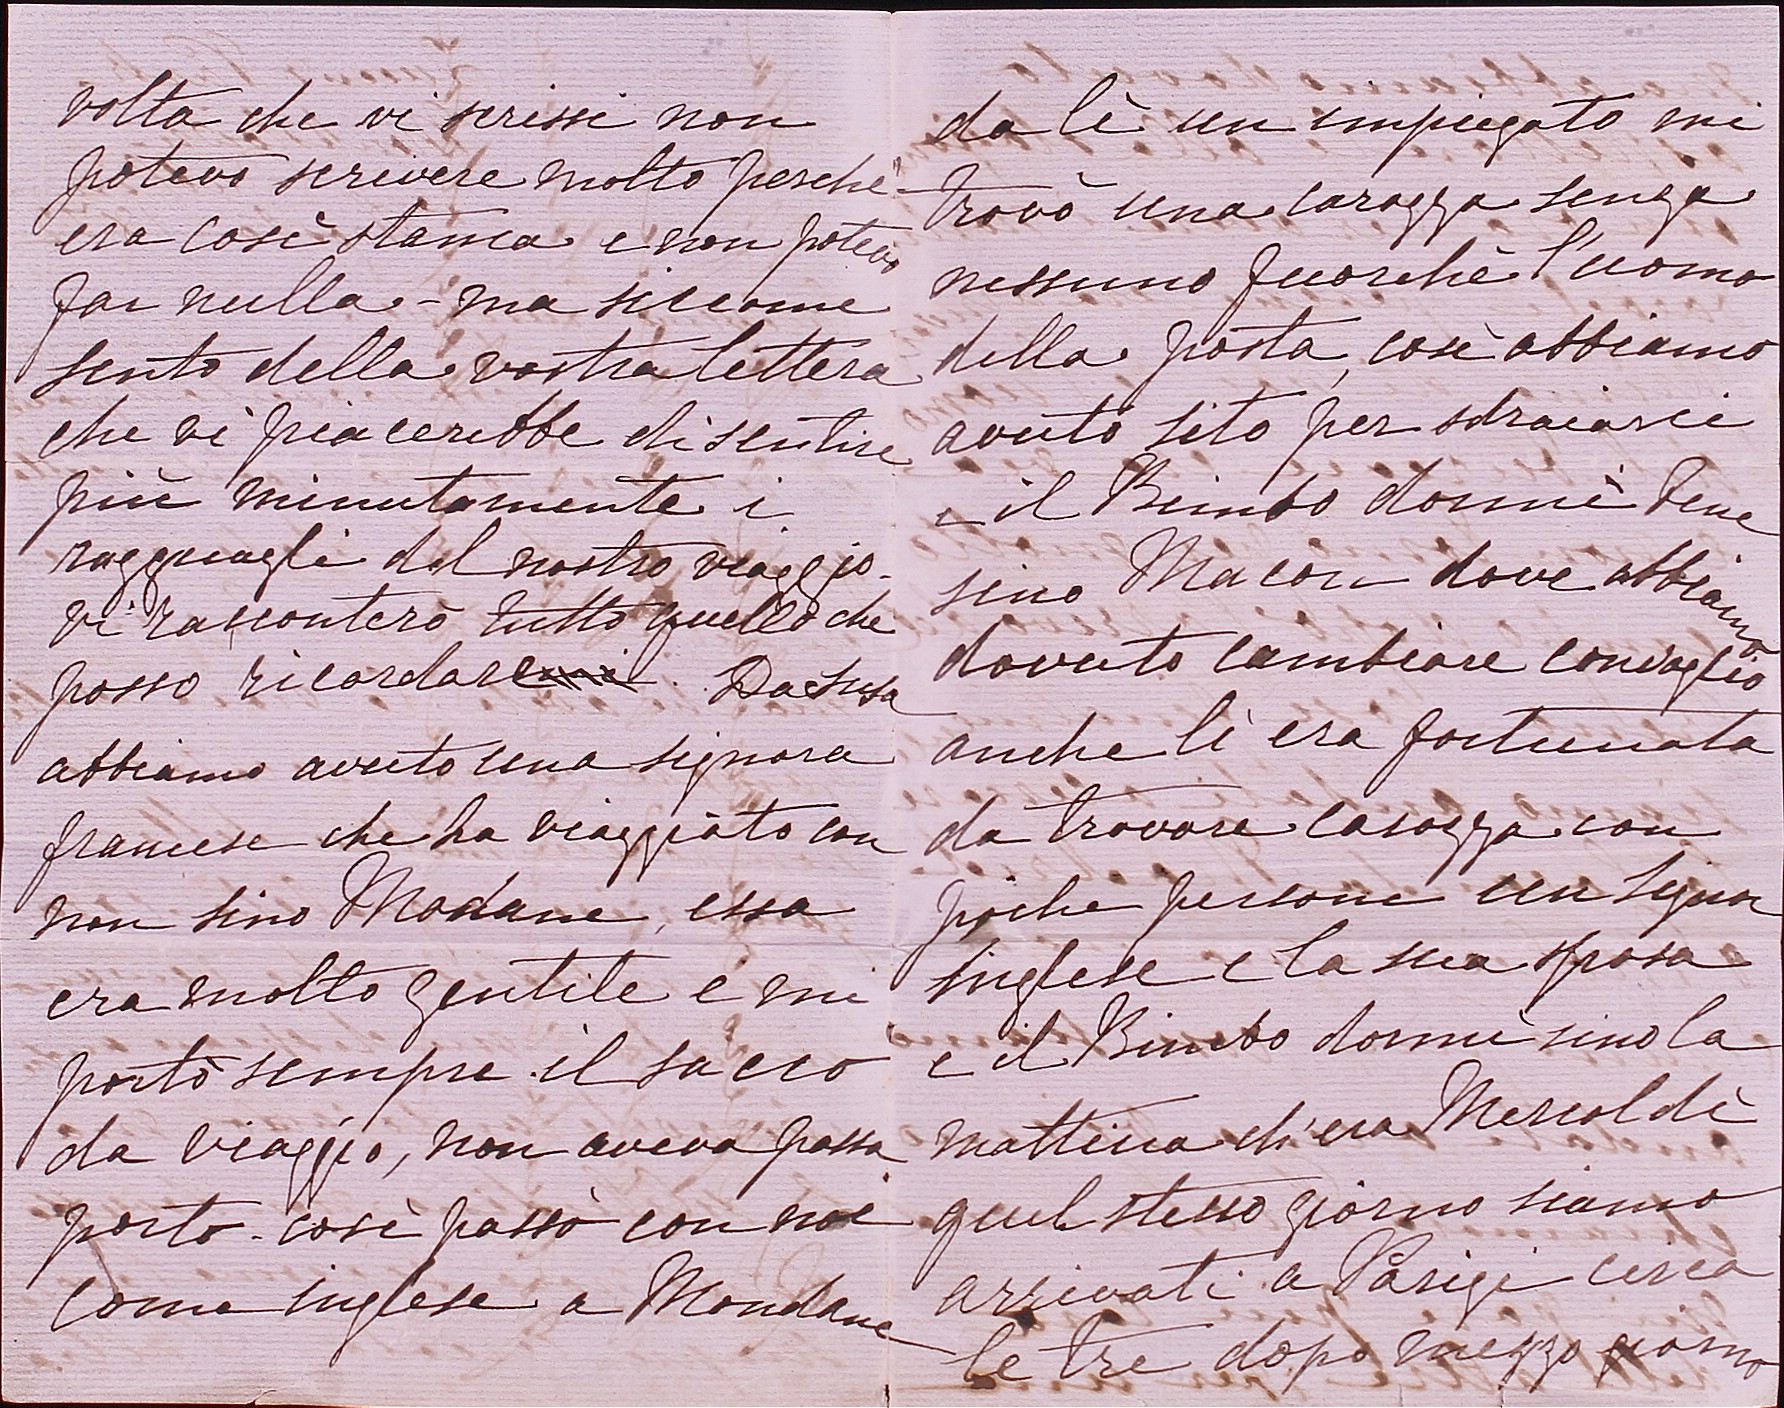 volta che vi scrissi non
potevo scrivere molto perchè
era così stanca e non potevo
far nulla - ma siccome
sento della vostra lettera
che vi piacerebbe di sentire
più minutamente i
ragguagli del nostro viaggio -
vi racconterò tutto quello che
posso ricordare. Da Susa
abbiamo avuto una signora
francese che ha viaggiato con
non sino Modane, essa
era molto gentile e mi
portò sempre il sacco
da viaggio, non aveva passa
porto - così passò con noi
come inglese a Mondane
da lì un impiegato mi
trovò una carozza senza
nessuno fuorchè l'uomo
della posta, così abbiamo
avuto sito per sdraiarci
e il Bimbo dormì bene
sino Macon dove abbiamo
dovuto cambiare convoglio
anche lì era fortunata
da trovare carozza con
poche persone un signor
inglese e la sua sposa
e il Bimbo dormì sino la
mattina ch'era Mercoldì
quel stesso giorno siamo
arrivati a Parigi circa
le tre dopo mezzo giorno